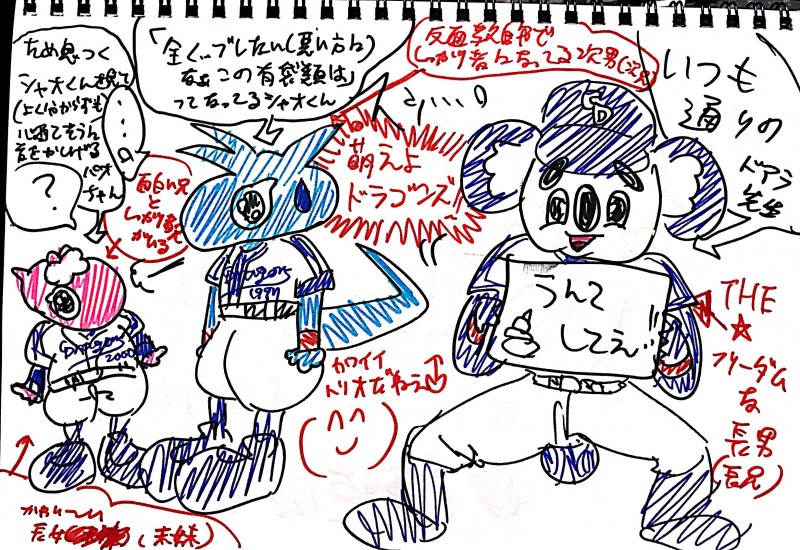 ため息つく
シャオくんを見て
心配そうに
首をかしげる
パオ
ちゃん
…
?
「全くブしたい(悪い方に)
なぁこの有袋類は」
ってなってるシャオくん
反面教師で
しっかり者になってる次男(次兄)
いつも
通りの
ドアラ
先生
萌えよ
ドラゴンズ!!
面白い兄と
しっかり者兄
がいる
CD
Dragons
1997
Dragons
2000
うんて
してえ
THE
☆
フリーダム
な
長男
(長兄)
カワイイ
トリオだねぇ
かわいーい
長女
(末妹)